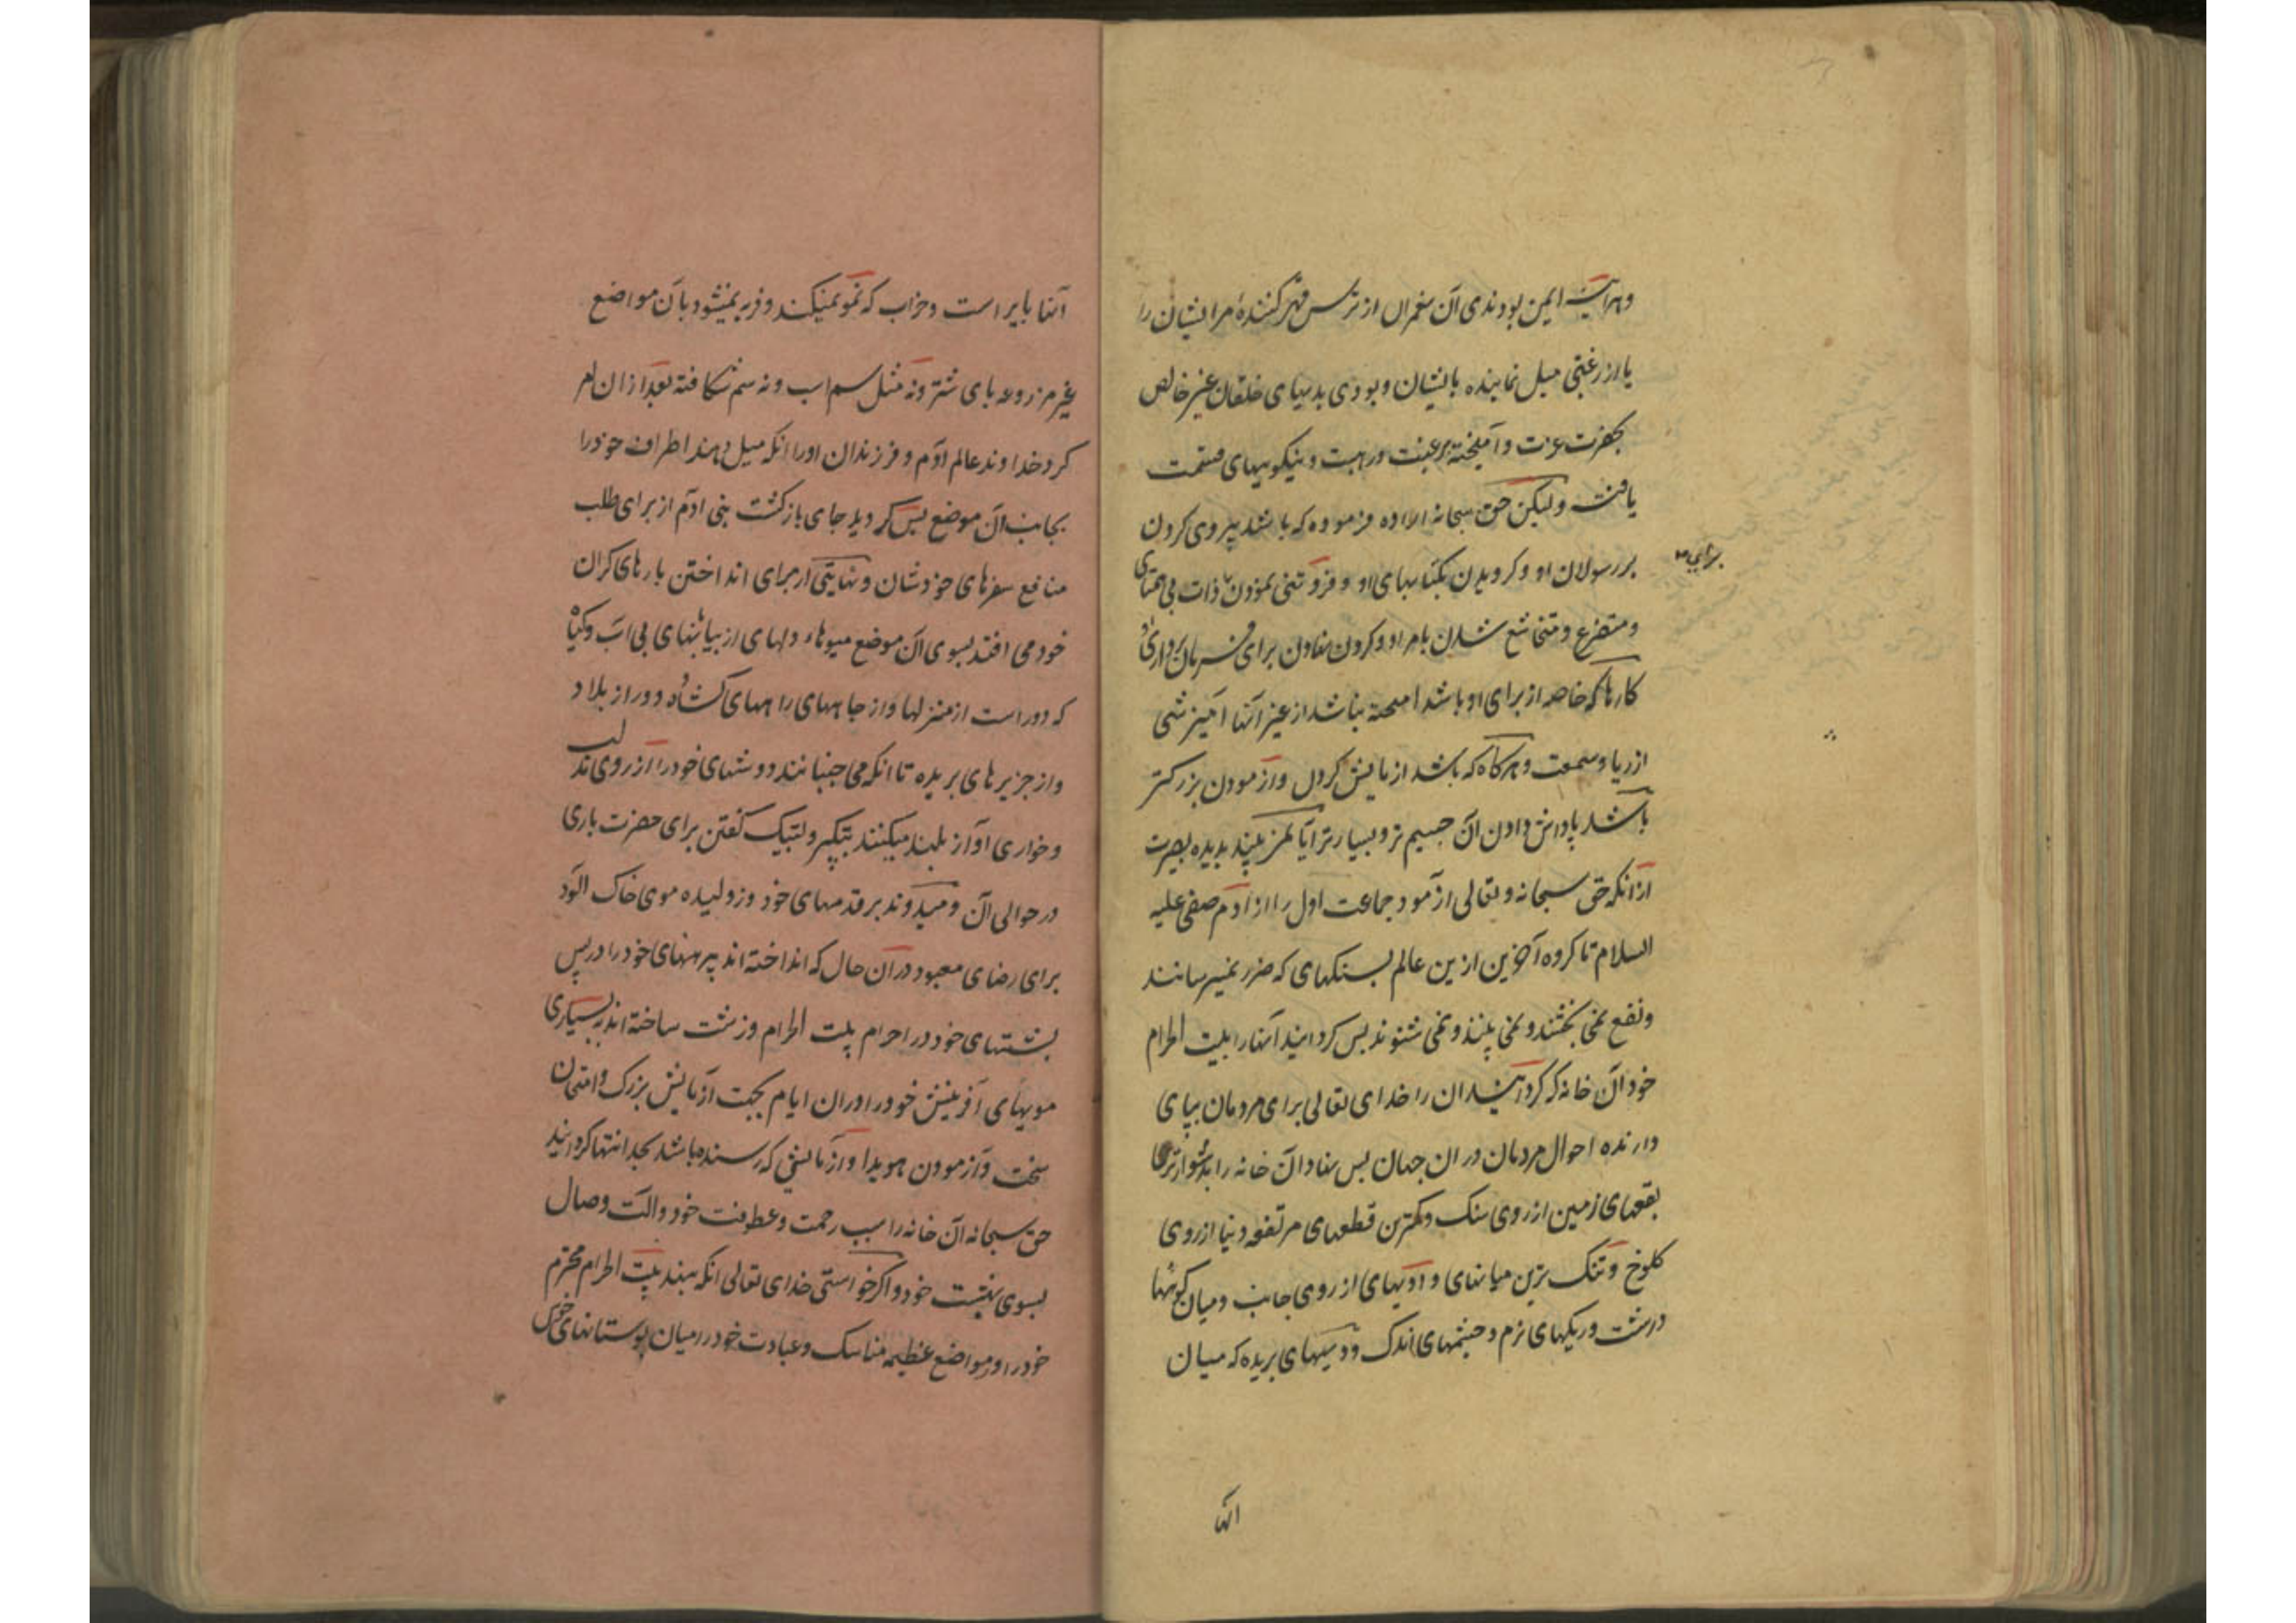 وهرآینه ایمن بودندی آن پیغمبران از ترس قهر کنندهٔ مر ایشان را
یا از رغبتی میل نماینده بایشان و بودی بدیهای خلقان غیر خالص
بحضرت عزت و آمیخته برغبت و رهبت و نیکوییهای قسمت
یافته ولیکن حق سبحانه اراده فرموده که باشد پیروی کردن
بر رسولان او و گرویدن بکتابهای او و فروتنی نمودن ذات بی همتای
برای
و متضرع و متخاشع شدن بامر او و کردن نهادن برای فرمان برداری
کارها که خاصه از برای او باشد آمیخته نباشد از غیر آنها آمیزشی
از ریا و سمعت و هرگاه که باشد آزمایش کردن و آزمودن بزرگتر
باشد پاداش دادن آن جسیم تر و بسیارتر آیا نمی بیند بدیده بصیرت
از آنکه حق سبحانه و تعالی آزمود جماعت اول را از آدم صفی علیه
السلام تا گروه آخرین ازین عالم بسنگهای که ضرر نمیرسانند
ونفع نمی بخشند و نمی بینند و نمی شنوند پس گردانید آنها را بیت الحرام
خود آن خانه که گردانید آن را خدای تعالی برای مردمان بپای
دارنده احوال مردمان در آن جهان پس نهاد آن خانه را بدشوارترین
بقعهای زمین از روی سنک و کمترین قطعهای مرتفعه دنیا از روی
کلوخ و تنک ترین میانهای وادیهای از روی جانب و میان کوههای
درشت و ریکهای نرم و چشمهای اندک و دیههای بریده که میان
آنها
آنها بایر است و خراب که نمو نمیکند و فربه نمیشود بآن مواضع
غیر مزروعه پای شتر و نه مثل سم اسب و نه سم شکافته بعد از ان امر
کرد خداوند عالم آدم و فرزندان اورا انکه میل دهند اطراف خود را
بجانب آن موضع پس گردید جای بازگشت بنی آدم از برای طلب
منافع سفرهای خودشان و نهایتی از برای انداختن بارهای کران
خود می افتد بسوی آن موضع میوهای دلهای از بیابانهای بی آب و گیاه
که دور است از منزلها و از چاههای راههای گشاده و دور از بلاد
و از جزیرهای بریده تا انکه می جنبانند دوشهای خود را از روی تذلل
و خواری آواز بلند میکنند بتکبیر و لبیک گفتن برای حضرت باری
در حوالی آن و میدوند بر قدمهای خود و ژولیده موی خاک آلود
برای رضای معبود در آن حال که انداخته اند پیرهنهای خود را در پس
پشتهای خود در احرام بیت الحرام و زشت ساخته اند به بسیاری
مویهای آفرینش خود را در ان ایام بجهت آزمایش بزرک و امتحان
سخت و آزمودن هویدا و آزمایشی که رسنده باشد بحد انتها گردانید
حق سبحانه آن خانه را سبب رحمت و عطوفت خود و آلت وصال
بسوی بهشت خود و اگر خواستی خدای تعالی انکه بنهد بیت الحرام محترم
خود را و مواضع عظیمه مناسک و عبادت خود را میان بوستانهای خوش